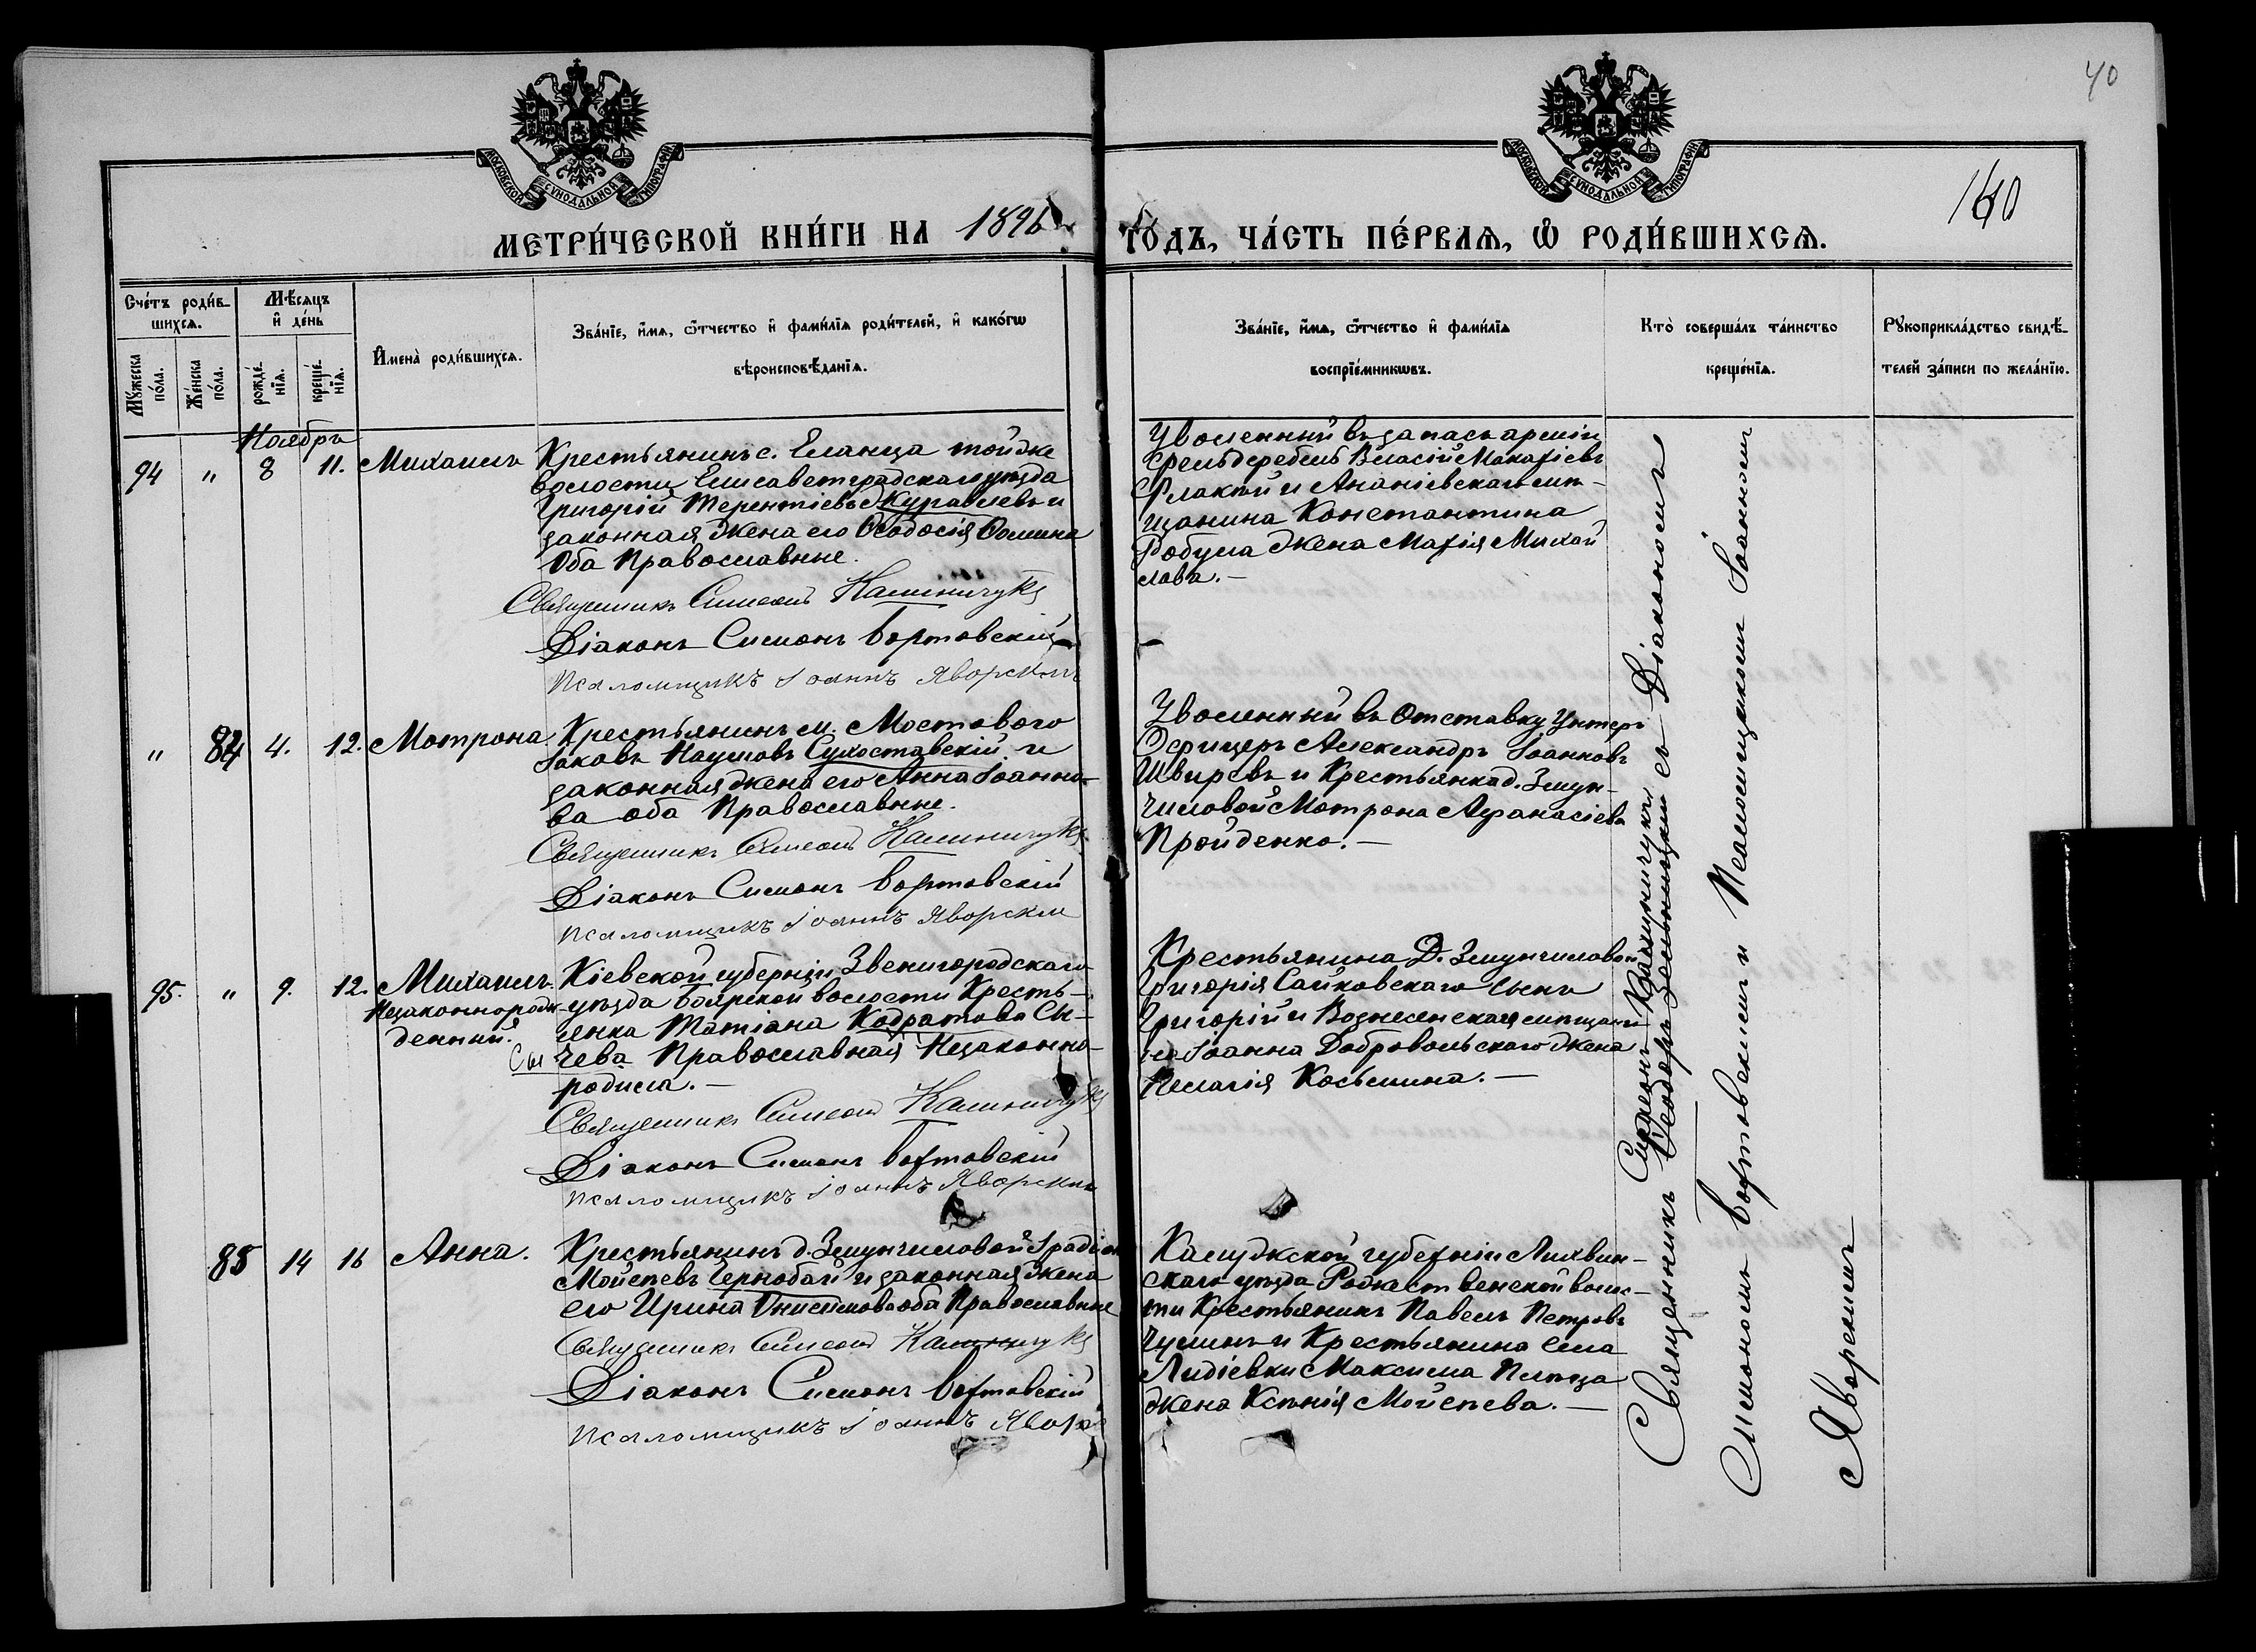 40
160
МОСКОВСКОЙ СѴНОДАЛЬНОЙ ТИПОГРАФІИ
МОСКОВСКОЙ СѴНОДАЛЬНОЙ ТИПОГРАФІИ
МЕТРИ́ЧЕСКОЙ КНИ́ГИ НА 1896 ГО́ДЪ, ЧА́СТЬ ПЕ́РВАѦ, Ѡ҆ РОДИ́ВШИХСѦ.
Сче́тъ роди́в-
шихсѧ.
Мѣ́сѧцъ
и҆ де́нь
Мꙋ́жеска
по́ла.
Же́нска
по́ла.
рожде́-
нїѧ.
креще́-
нїѧ.
И҆мена̀ роди́вшихсѧ.
Зва́нїе, и҆́мѧ, ѻ҆́тчество и҆ фами́лїѧ роди́телей, и҆ како́гѡ
вѣроисповѣ́данїѧ.
Зва́нїе, и҆́мѧ, ѻ҆́тчество и҆ фами́лїѧ
воспрїе́мникѡвъ.
Кто̀ соверша́лъ та́инство
креще́нїѧ.
Рꙋкоприкла́дство свидѣ́-
телей за́писи по жела́нїю.
Ноябрь
94 " 8 11. Михаилъ
Крестьянинъ с. Еланца тойже
волости Елисаветградскаго уѣзда
Григорій Терентіевъ Журавлевъ и
законная жена его Ѳеодосія Ѳомина
Оба Православные.
Священникъ Симеонъ Калиничукъ
Діаконъ Симонъ Бортовскій
Псаломщикъ Іоаннъ Яворскій
Уволенный въ запасъ арміи
Фельдфебель Власій Макаріевъ
и Ананіевскаго мѣ-
щанина Константина
Робула жена Марія Михай
лова.—
" 84 4. 12. Мотрона
Крестьянинъ м. Мостового
Іаковъ Наумовъ Сухоставскій и
законная жена его Анна Іоанно-
ва оба Православные.
Священникъ Симеонъ Калиничукъ
Діаконъ Симонъ Бортовскій
Псаломщикъ Іоаннъ Яворскій
Уволенный въ Отставку Унтеръ
Офицеръ Александръ Іоанновъ
Швыревъ и Крестьянка д. Змун-
чиловой Мотрона Афанасіева
Пройденко.—
95. " 9. 12. Михаилъ.
Незаконнорож-
денный.
Кіевской губерніи Звенигородскаго
уѣзда Боярской волости Кресть-
янка Татіана Кодратова Сы-
Сы чева Православная Незаконно-
родила.—
Священникъ Симеонъ Калиничукъ
Діаконъ Симонъ Бортовскій
Псаломщикъ Іоаннъ Яворскій
Крестьянина Д. Змунчиловой
Григорія Сайковскаго сынъ
Григорій и Вознесенскаго мѣщани
на Іоанна Добровольскаго жена
Пелагія Косьмина.—
85 14 16 Анна.
Крестьянинъ д. Змунчиловой Іродіонъ
Мойсеевъ Чернобай и законная жена
его Ирина Онисимова оба Православные
Священникъ Симеонъ Калиничукъ
Діаконъ Симонъ Бортовскій
Псаломщикъ Іоаннъ Явор
Калужской губерніи Лихвин-
скаго уѣзда Рожественской волос-
ти Крестьянинъ Павелъ Петровъ
Чулинъ и Крестьянина села
Лидіевки Максима
жена Ксенія Мойсеева.—
Симеонъ Калиничукъ
Священникъ съ Діакономъ
Симономъ Бортовскимъ и Псаломщикомъ Іоанномъ
Яворскимъ